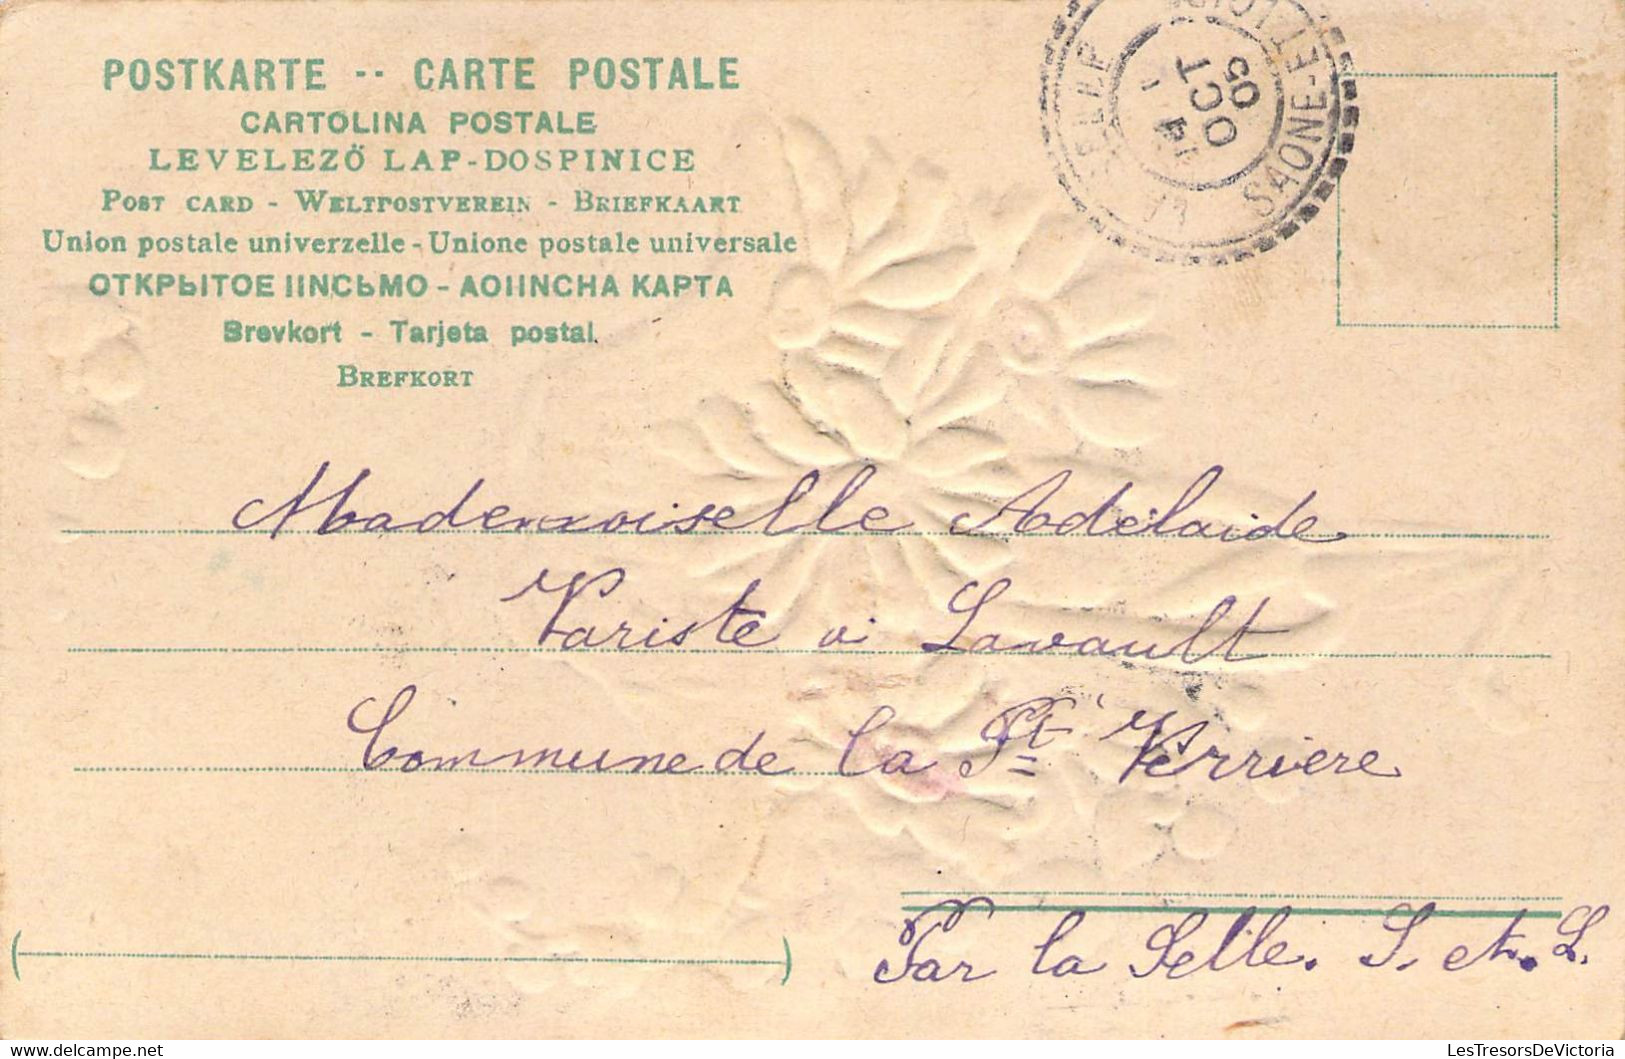 POSTKARTE -- CARTE POSTALE
CARTOLINA POSTALE
LEVELEZŐ LAP-DOSPINICE
POST CARD - WELTPOSTVEREIN - BRIEFKAART
Union postale univerzelle - Unione postale universale
ОТКРЬІТОЕ ІІИСЬМО - АОІІИСНА КАРТА
Brevkort - Tarjeta postal
BREFKORT
SAONE-ET-LOIRE
14
OCT
05
Mademoiselle Adélaide
Variste à Lavault
Commune de la Pte Verriere
Par la Selle. S. et. L.
LesTresorsDeVictoria